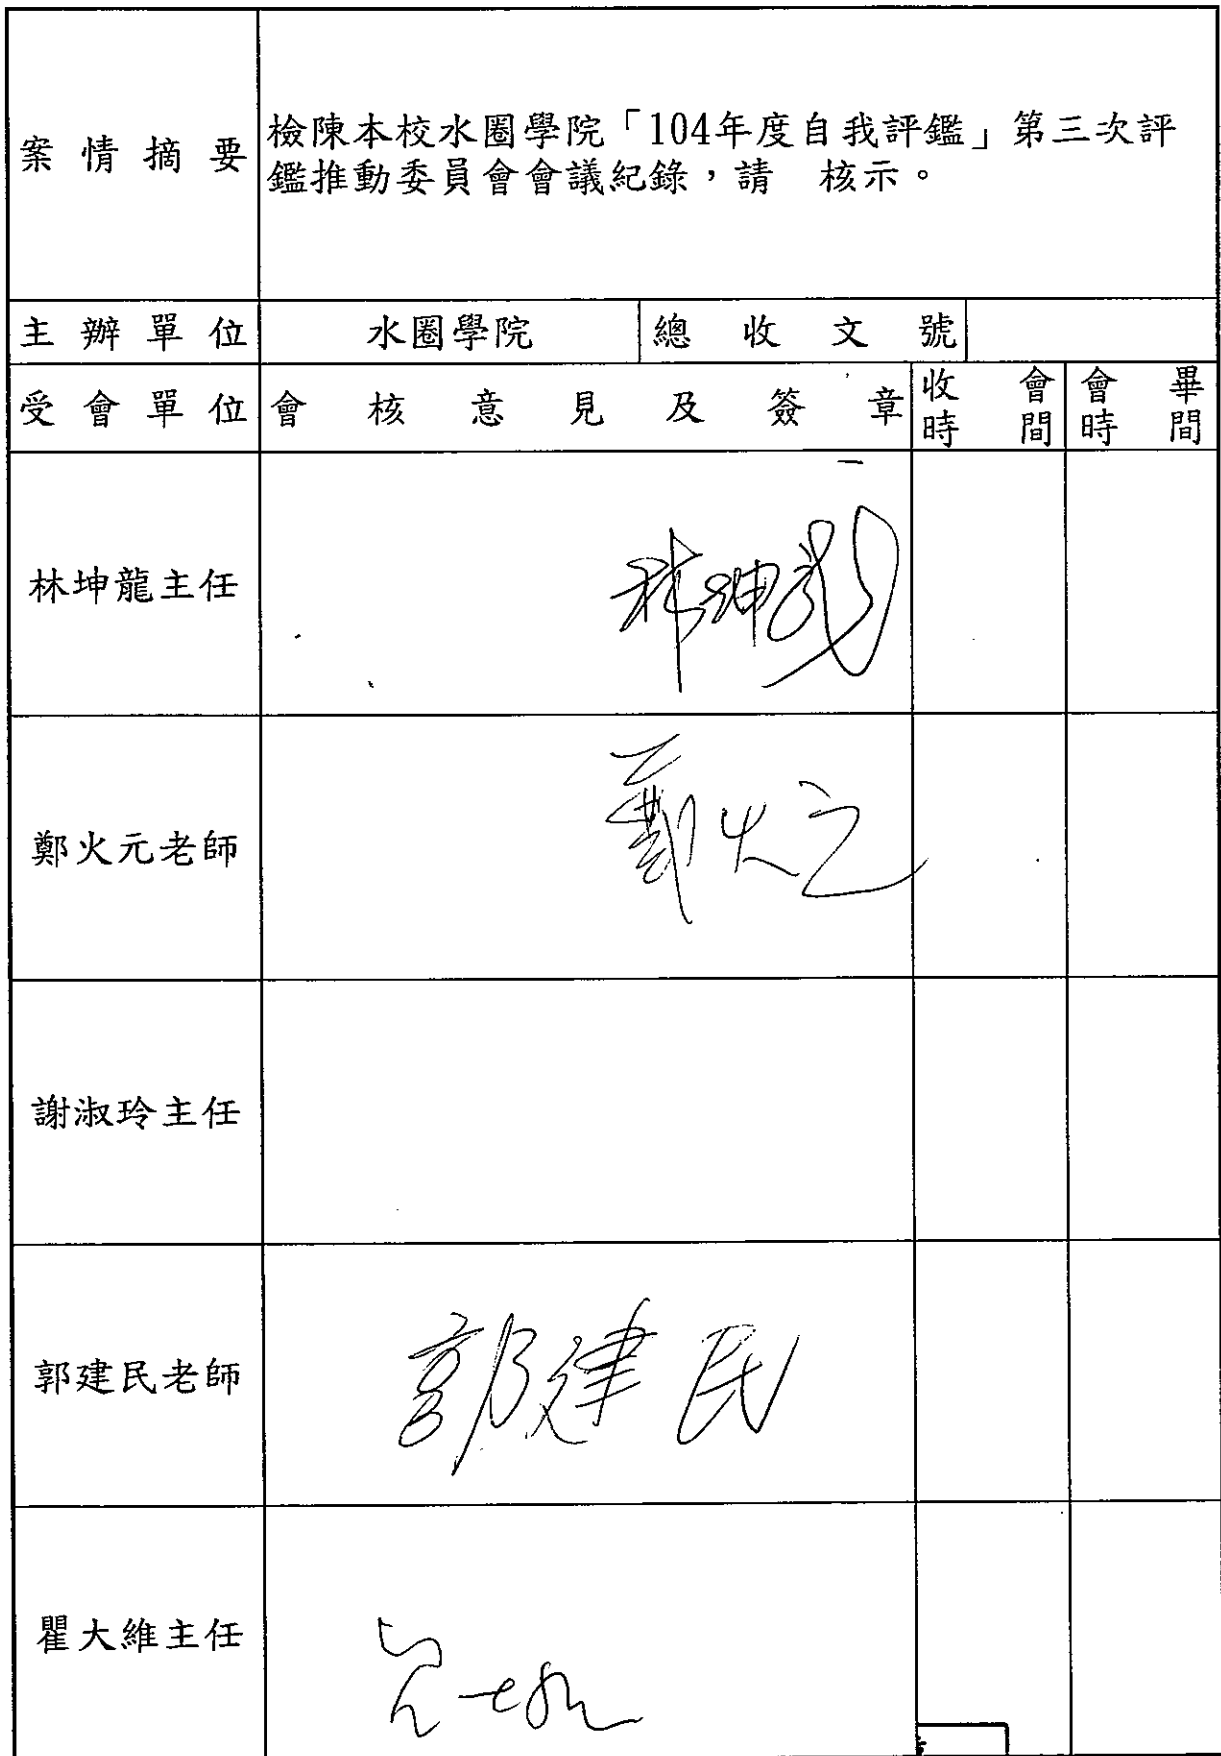 案情摘要
檢陳本校水圈學院「104年度自我評鑑」第三次評
鑑推動委員會會議紀錄，請　核示。
主辦單位 水圈學院 總收文號
受會單位 會核意見及簽章 收會時間 會畢時間
林坤龍主任 林坤龍
鄭火元老師 鄭火元
謝淑玲主任
郭建民老師 郭建民
瞿大維主任